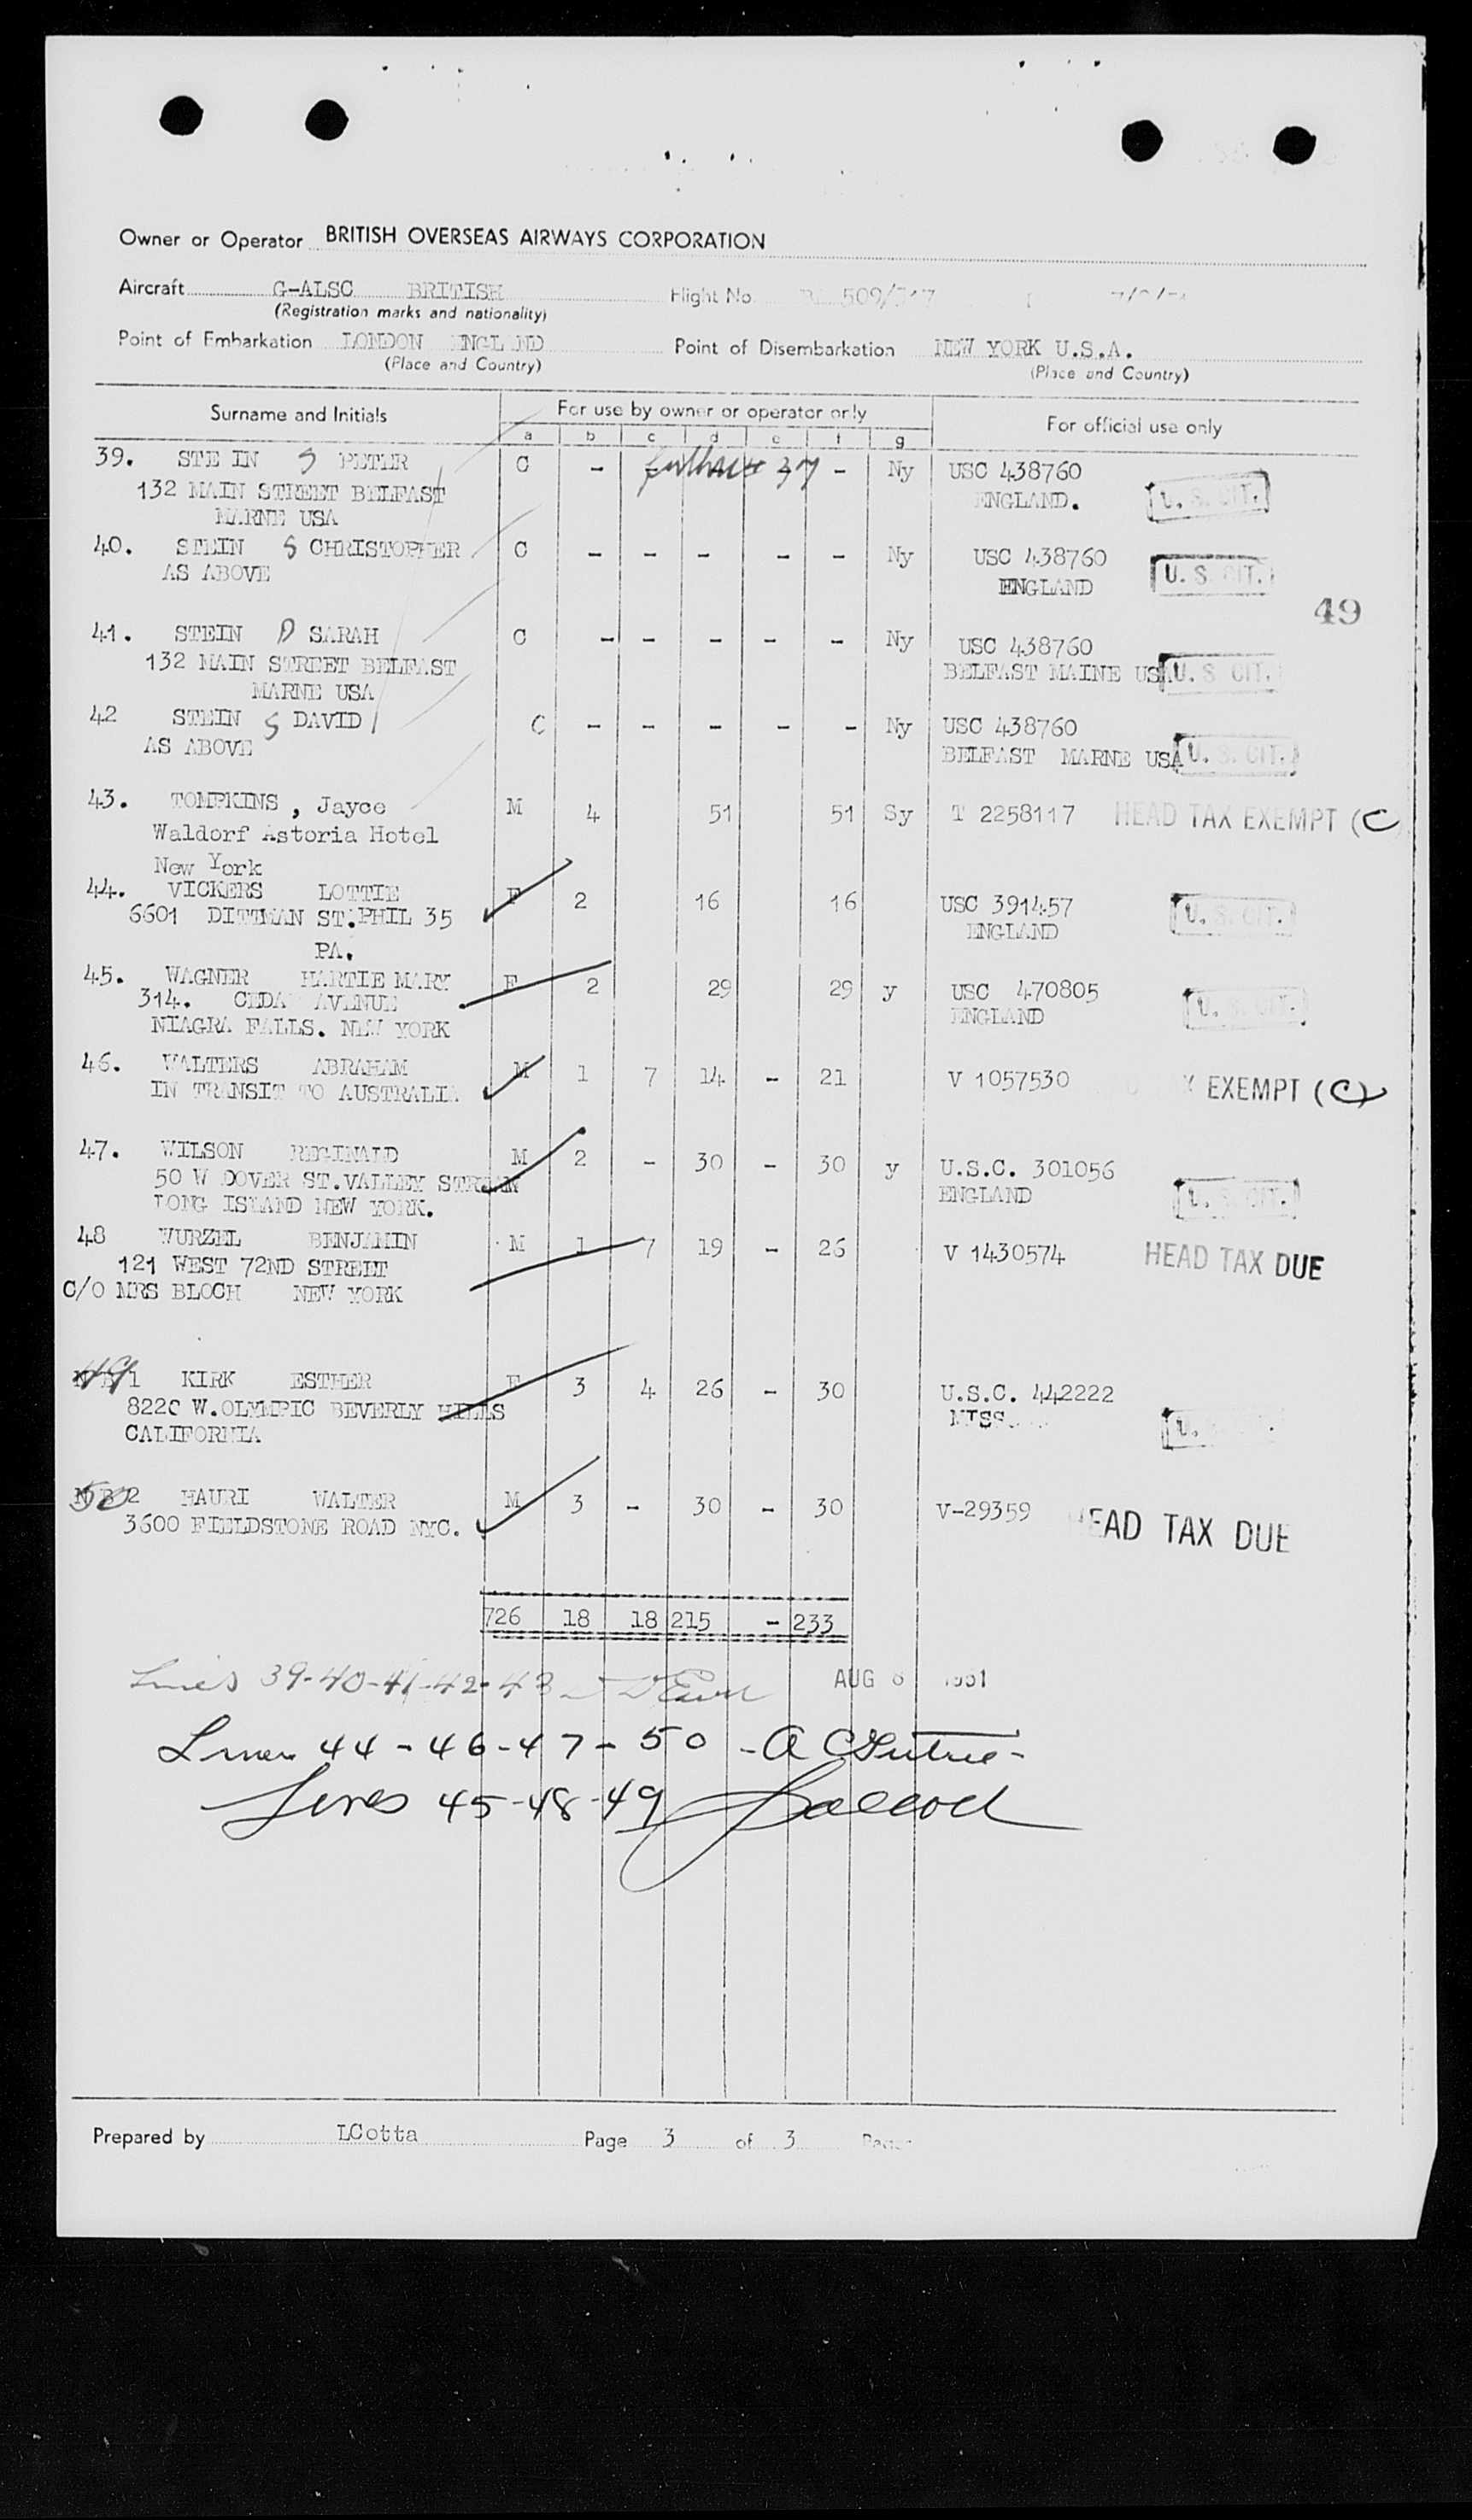 Owner or Operator BRITISH OVERSEAS AIRWAYS CORPORATION
Aircraft G-ALSC BRITISH Flight No. 509/
(Registration marks and nationality)
Point of Embarkation LONDON ENGLAND Point of Disembarkation NEW YORK U.S.A.
(Place and Country) (Place and Country)
Surname and Initials For use by owner or operator only For official use only
a b c d e f g
39. STE IN S PETER C - 37 - Ny USC 438760
132 MAIN STREET BELFAST ENGLAND. U. S. CIT.
MARNE USA
40. STEIN S CHRISTOPHER C - - - - - Ny USC 438760
AS ABOVE ENGLAND U. S. CIT.
49
41. STEIN D SARAH C - - - - - Ny USC 438760
132 MAIN STREET BELFAST BELFAST MAINE USA U. S. CIT.
MARNE USA
42 STEIN S DAVID C - - - - - Ny USC 438760
AS ABOVE BELFAST MARNE USA U. S. CIT.
43. TOMPKINS , Jayce M 4 51 51 Sy T 2258117 HEAD TAX EXEMPT (C
Waldorf Astoria Hotel
New York
44. VICKERS LOTTIE F 2 16 16 USC 391457 U. S. CIT.
6601 DITTMAN ST.PHIL 35 ENGLAND
PA.
45. WAGNER HARTIE MARY F 2 29 29 y USC 470805
314. CEDA AVENUE ENGLAND U. S. CIT.
NIAGRA FALLS. NEW YORK
46. WALTERS ABRAHAM M 1 7 14 - 21 V 1057530 EXEMPT (C)
IN TRANSIT TO AUSTRALIA
47. WILSON REGINALD M 2 - 30 - 30 y U.S.C. 301056
50 W DOVER ST.VALLEY STREAM ENGLAND U. S. CIT.
LONG ISLAND NEW YORK.
48 WURZEL BENJAMIN M 1 7 19 - 26 V 1430574 HEAD TAX DUE
121 WEST 72ND STREET
C/O MRS BLOCH NEW YORK
49 1 KIRK ESTHER F 3 4 26 - 30 U.S.C. 442222
8220 W.OLYMPIC BEVERLY HILLS MISS. U.
CALIFORNIA
50 2 HAURI WALTER M 3 - 30 - 30 V-29359 HEAD TAX DUE
3600 FIELDSTONE ROAD NYC.
726 18 18 215 - 233
Lines 39-40-41-42-43 - AUG 8 1951
Lines 44-46-47-50 -
Lines 45-48-49
Prepared by LCotta Page 3 of 3 Pages